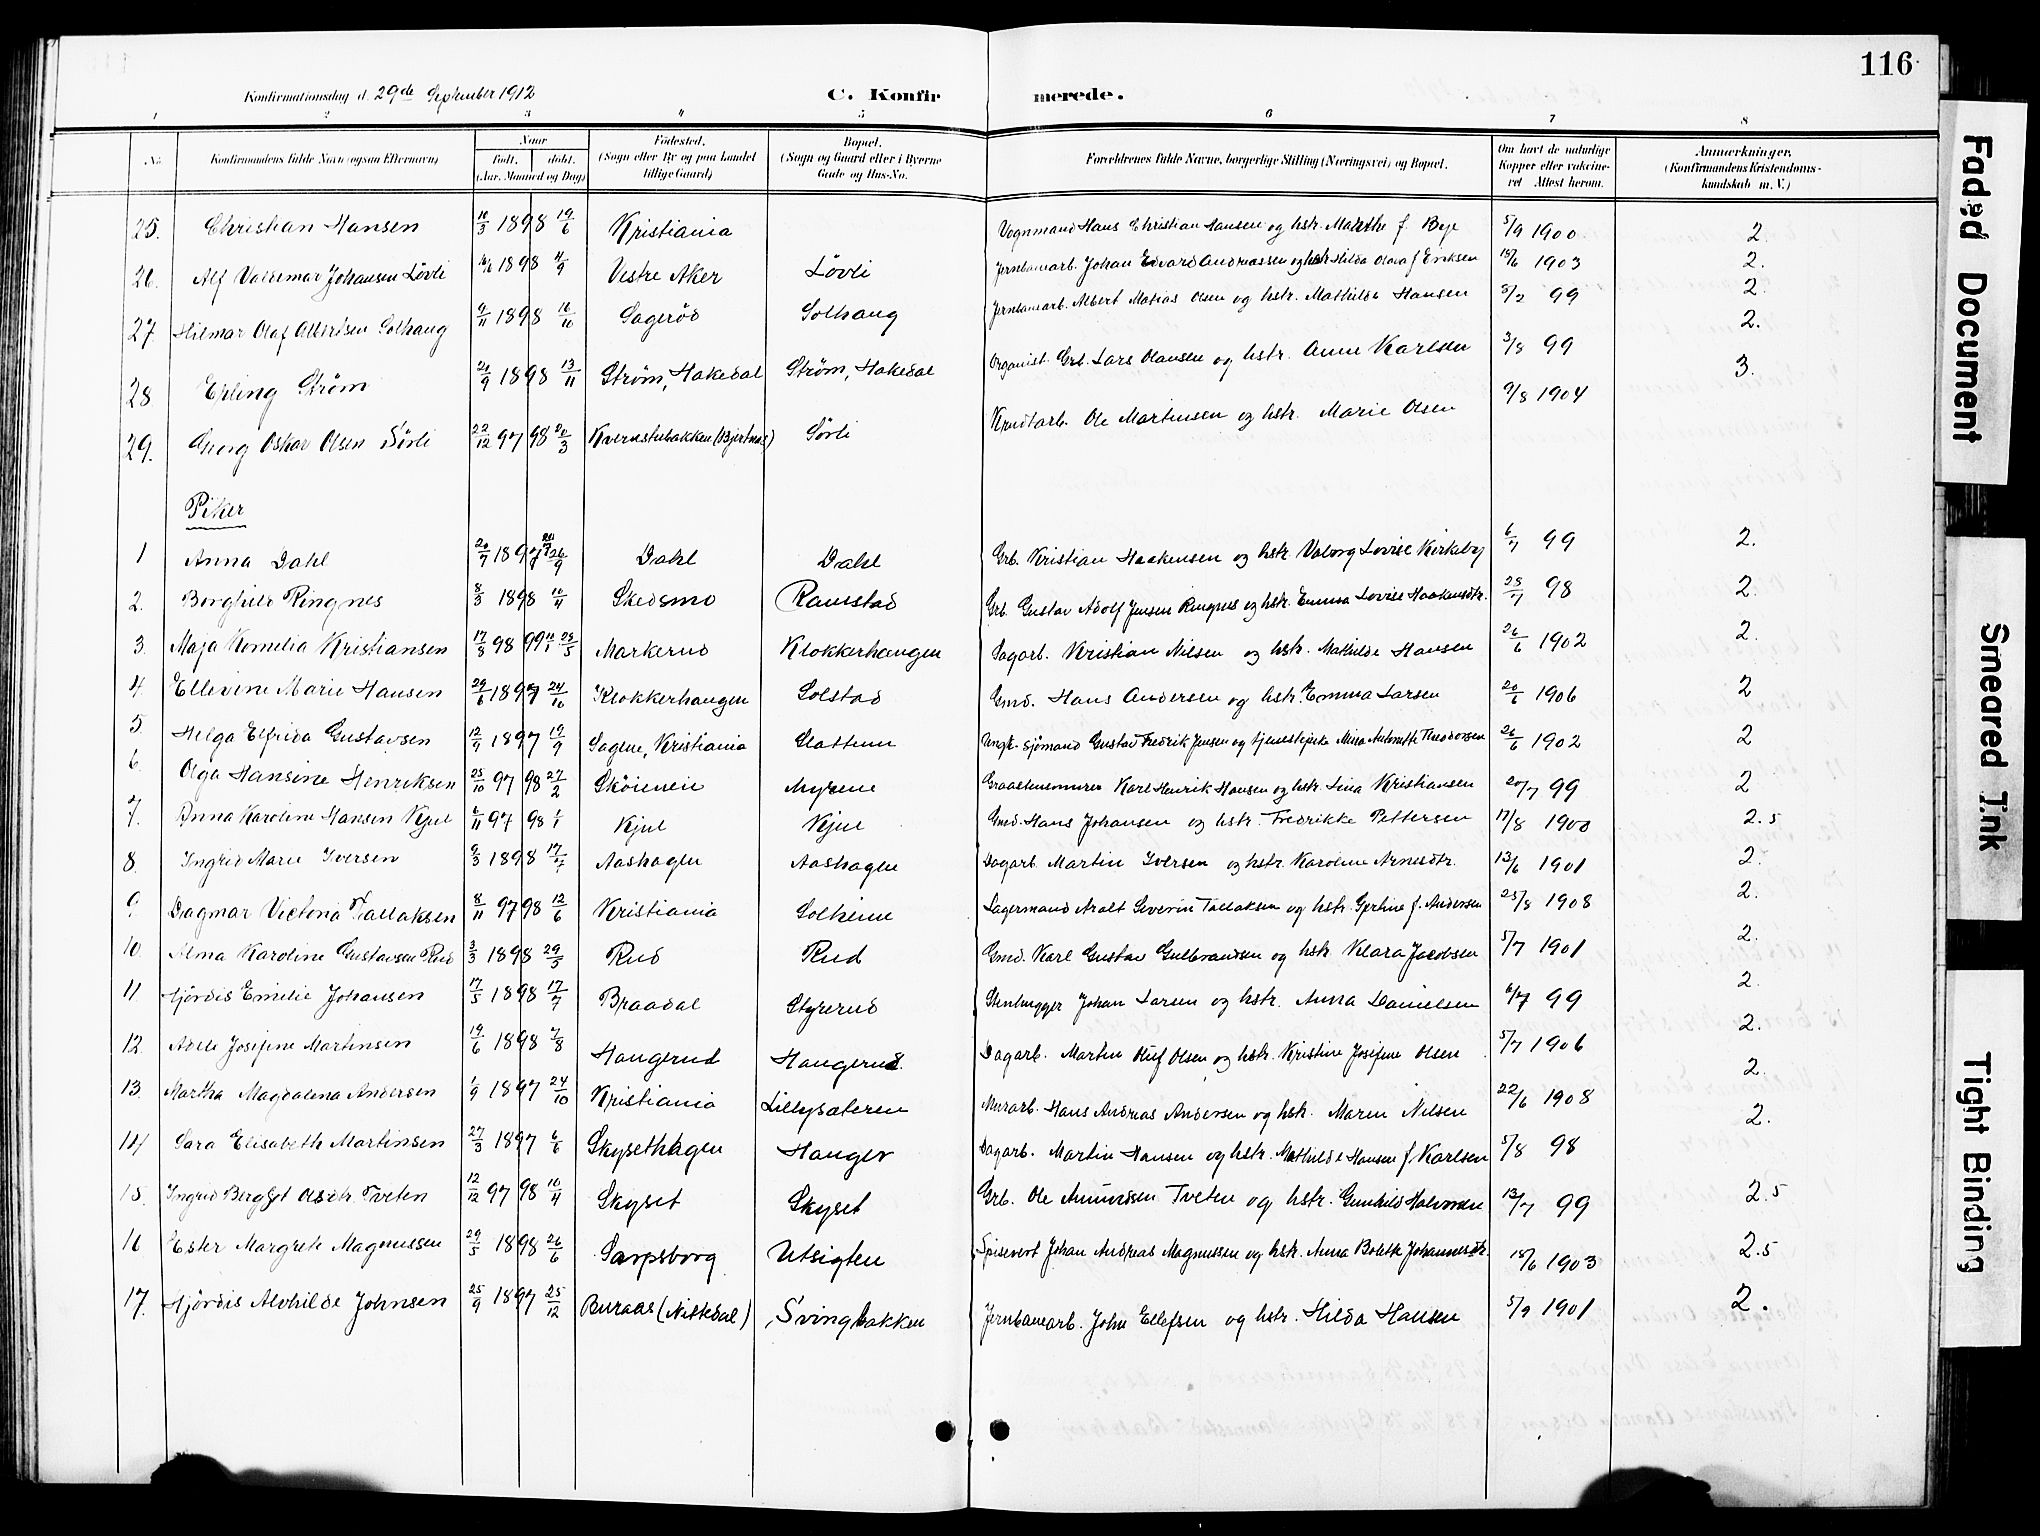 116
Konfirmationsdag d. 29de September 1912 C. Konfirmerede.
1 2 3 4 5 6 7 8
No. Konfirmandens fulde Navn (ogsaa Efternavn) Naar født, døbt. (Aar, Maaned og Dag) Fødested. (Sogn eller By og paa Landet tillige Gaard) Bopæl. (Sogn og Gaard eller i Byerne Gade og Hus-No. Forældrenes fulde Navne, borgerlige Stilling (Næringsvei) og Bopæl. Om havt de naturlige Kopper eller vakcineret Attest herom. Anmærkninger. (Konfirmandens Kristendomskundskab m. V.)
25. Christian Hansen 10/3 1898 19/6 Kristiania Vognmand Hans Christian Hansen og hstr. Marthe f. Bye 5/9 1900 2.
26. Alf Valdemar Johansen Lövli 1898 11/9 Vestre Aker Lövli Jernbanearb. Johan Edvard Andreassen og hstr. Hilda Olava f. Eriksen 19/6 1903 2.
27. Hilmar Olaf Albertsen Solhaug 9/11 1898 16/10 Sageröd Solhaug Jernbanearb. Albert Matias Olsen og hstr. Mathilde Hansen 3/2 99 2.
28 Erling Strøm 20/9 1898 13/11 Strøm, Hakedal Strøm, Hakedal Organist. Grb. Lars Hansen og hstr. Anne Karlsen 3/8 99 2.
29. Georg Oskar Olsen Sörli 22/12 97 98 20/3 Kvernstubakken (Bjertnes) Sörli Krudtarb. Ole Martinsen og hstr. Marie Olsen 9/8 1904 3.
Piker
1 Anna Dahl 20/7 1897 26/9 Dahl Dahl Grb. Kristian Haakensen og hstr. Valborg Lovise Kirkeby 6/7 99 2.
2. Borghild Ringnes 8/3 1898 10/4 Skedsmo Ramstad Grb. Gustav Adolf Jensen Ringnes og hstr. Emma Lovise Haakensdtr. 25/7 98 2.
3. Maja Kornelia Kristiansen 17/8 98 99 25/5 Markerud Klokkerhaugen Dagarb. Kristian Nilsen og hstr. Mathilde Hansen 26/6 1902 2.
4. Ellevine Marie Hansen 29/6 1897 24/10 Klokkerhaugen Solstad Gmd. Hans Andersen og hstr. Emma Larsen 20/6 1906 2
5. Helga Elfrida Gustavsen 12/9 1897 19/9 Sagene, Kristiania Slattum Ungk. Sjömand Gustav Fredrik Jensen og tjenestepike Mina Antonette Theodorsen 26/6 1902 2
6. Olga Hansine Henriksen 25/10 97 98 27/2 Sköienen Myrene Graastensmurer Karl Henrik Hansen og hstr. Lina Kristiansen 20/7 99 2
7. Anna Karoline Hansen Kjul 6/11 97 98 1/1 Kjul Kjul Gmd. Hans Johansen og hstr. Fredrikke Pettersen 17/8 1900 2.5
8. Ingrid Marie Iversen 9/3 1898 17/7 Aashagen Aashagen Dagarb. Martin Iversen og hstr. Karoline Arnesdtr. 13/6 1901 2.
9. Dagmar Victoria Tallaksen 8/11 97 98 12/6 Kristiania Solheim Lagermand Aralt Severin Tallaksen og hstr. Gertine f. Andersen 25/8 1908 2.
10. Alma Karoline Gustavsen Rud 3/3 1898 29/3 Rud Rud Gmd. Karl Gustav Gulbrandsen og hstr. Klara Jacobsen 5/7 1901 2.
11 Hjördis Emilie Johansen 17/5 1898 17/7 Braadal Styrerud Stenhugger Johan Larsen og hstr. Anna Danielsen 6/7 99 2.
12. Adele Josefine Martinsen 19/6 1898 7/8 Haugerud Haugerud. Dagarb. Martin Oluf Olsen og hstr. Kristine Josefine Olsen 5/7 1906 2.
13. Martha Magdalena Andersen 1/9 1897 24/10 Kristiania Lillysæteren Murarb. Hans Andreas Andersen og hstr. Maren Nilsen 22/6 1908 2.
14 Sara Elisabeth Martinsen 27/3 1897 6/6 Skysethagen Hauger Dagarb. Martin Hansen og hstr. Mathilde Hansen f. Karlsen 5/8 98 2.
15. Ingrid Bergljot Olsdtr. Tveten 12/12 97 98 10/4 Skyset Skyset Grb. Ole Amundsen Tveten og hstr. Gunhild Halvorsen 13/7 99 2.5
16 Ester Margrete Magnussen 29/5 1898 26/6 Sarpsborg Utsigten Spisevert Johan Andreas Magnussen og hstr. Anna Bolette Johannesdtr. 18/6 1903 2.5
17. Hjördis Alvhilde Johnsen 25/9 1897 25/12 Buraas (Nittedal) Svingbakken Jernbanearb. John Ellefsen og hstr. Hilda Hansen 5/9 1901 2.
Faded Document
Smeared Ink
Tight Binding